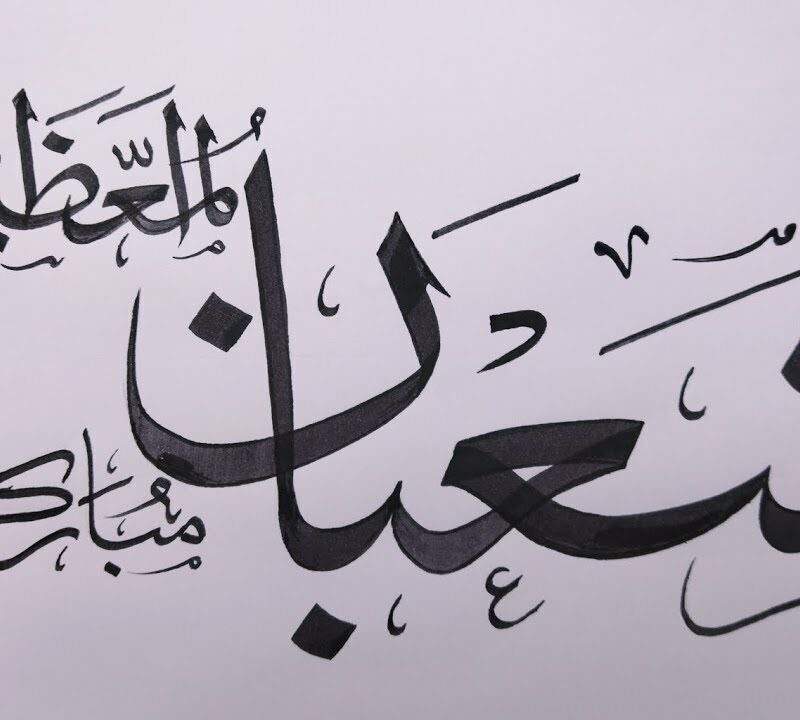 شعبان
المعظم
مبارک